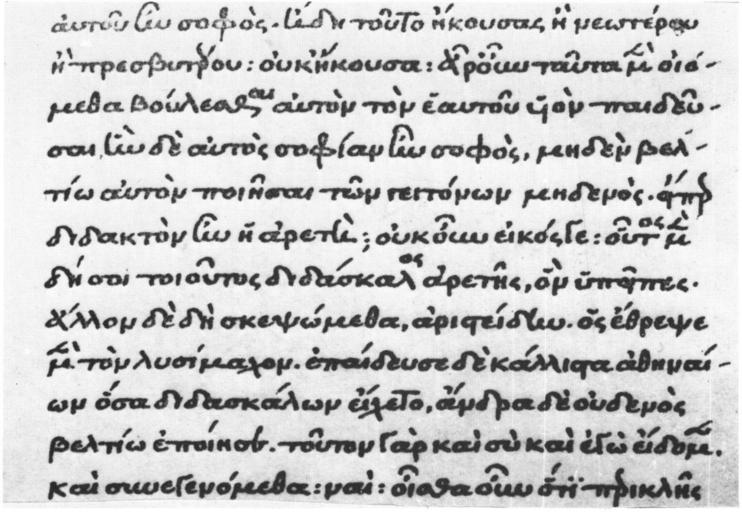 αὐτοῦ ἦν σοφὸς. ἤδη τοῦτο ἤκουσας ἢ νεωτέρου
ἢ πρεσβυτέρου: οὐκ ἤκουσα: ἆρ' οὖν ταῦτα μὲν οἰό-
μεθα βούλεσθαι αὐτὸν τὸν ἑαυτοῦ ὑὸν παιδεῦ-
σαι, ἣν δὲ αὐτὸς σοφίαν ἦν σοφὸς, μηδὲν βελ-
τίω αὐτὸν ποιῆσαι τῶν γειτόνων μηδενὸς. εἴπερ
διδακτὸν ἦν ἡ ἀρετὴ; οὐκοῦν εἰκός γε: οὗτος μὲν
δή σοι τοιοῦτος διδάσκαλος ἀρετῆς, ὃν ὑπεῖπες.
ἄλλον δὲ δὴ σκεψώμεθα, ἀριστείδην. ὃς ἔθρεψε
μὲν τὸν λυσίμαχον. ἐπαίδευσε δὲ κάλλιστα ἀθηναί-
ων ὅσα διδασκάλων εἴχετο, ἄνδρα δὲ οὐδενὸς
βελτίω ἐποίησεν. τοῦτον γὰρ καὶ σὺ καὶ ἐγὼ εἴδομεν.
καὶ συνεγενόμεθα: ναὶ: οἶσθα οὖν ὅτι περικλῆς